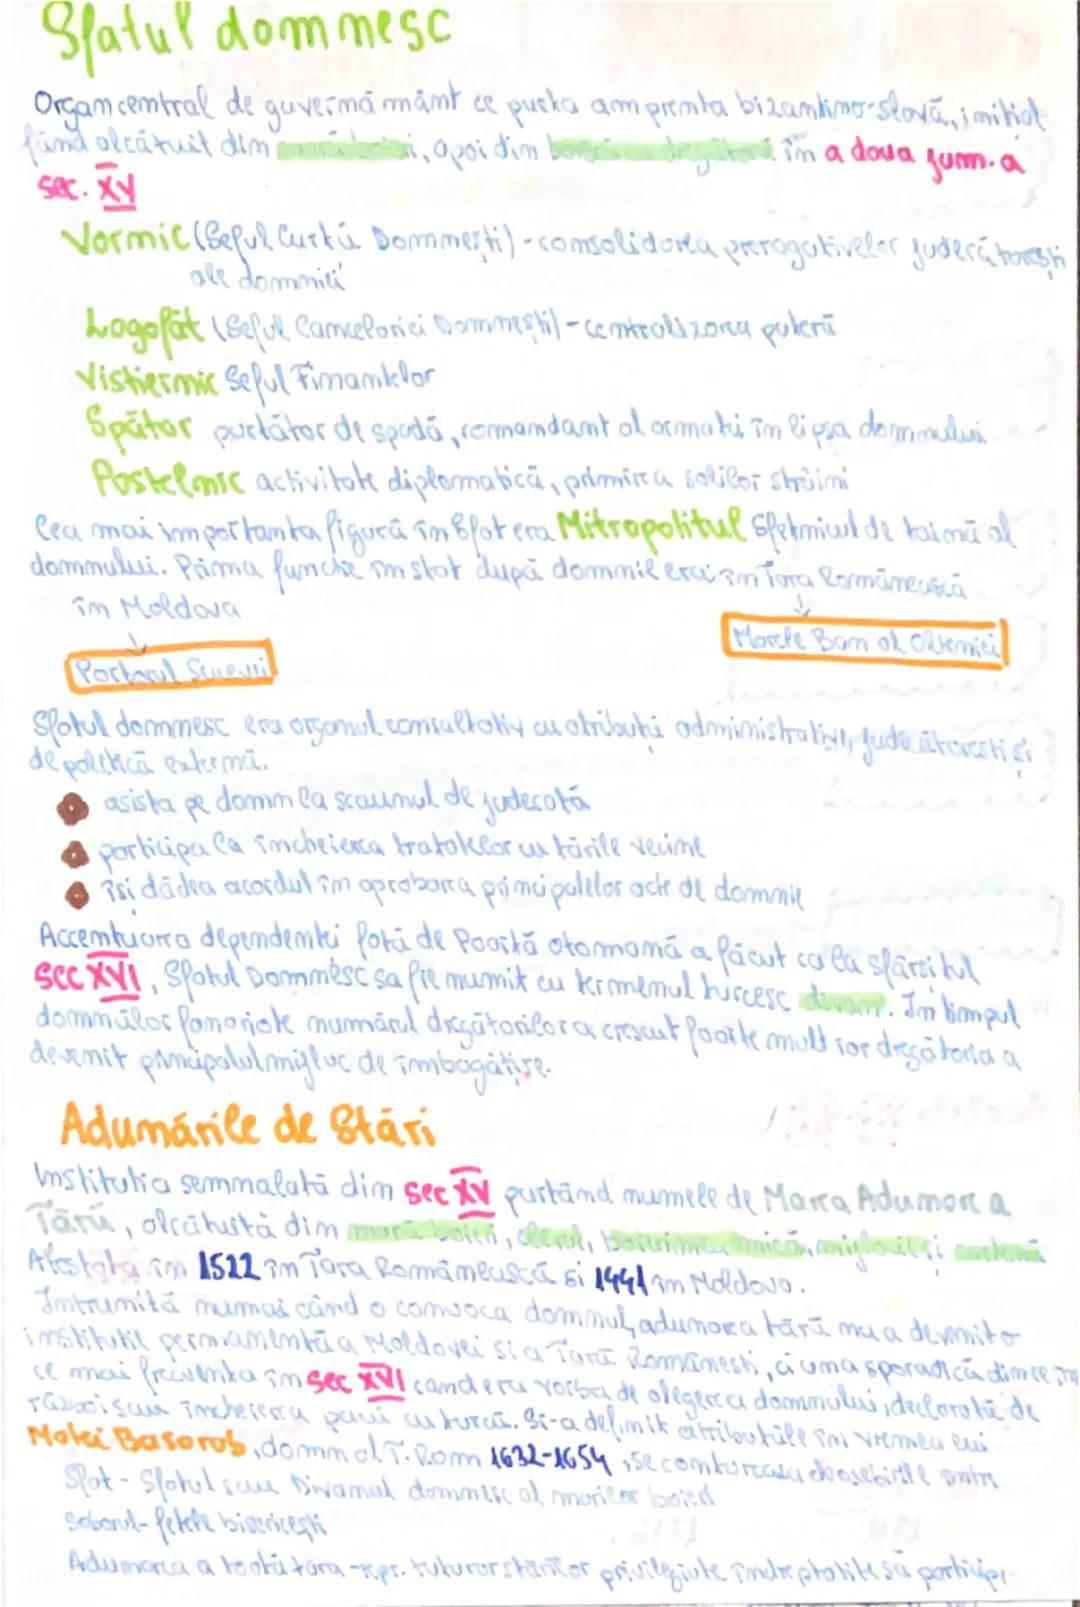 Sfatul domnesc
Organ central de guvernământ ce purta amprenta bizantino-slavă, inițial
fiind alcătuit din marii boieri, apoi din boieri cu dregătorii în a doua jum. a
sec. XV
Vornic (Șeful Curții Domnești) - consolidarea prerogativelor judecătorești
ale domniei
Logofăt (Șeful Cancelariei Domnești) - centralizarea puterii
Vistiernic Șeful Finanțelor
Spătar purtător de spadă, comandant al armatei în lipsa domnului
Postelnic activitate diplomatică, primirea solilor străini
Cea mai importanta figură în Sfat era Mitropolitul Sfetnicul de taină al
domnului. Prima funcție în stat după domnie era: în Țara Românească
în Moldova
Marele Ban al Olteniei
Portarul Sucevei
Sfatul domnesc era organul consultativ cu atribuții administrative, judecătorești și
de politică externă.
asista pe domn la scaunul de judecată
participa la încheierea tratatelor cu țările vecine
își dădea acordul în aprobarea principalelor acte de domnie
Accentuarea dependenței față de Poartă otomană a făcut ca la sfârșitul
sec XVI, Sfatul Domnesc sa fie numit cu termenul turcesc divan. În timpul
domniilor fanariote numărul dregătorilor a crescut foarte mult iar dregătoria a
devenit principalul mijloc de îmbogățire.
Adunările de Stări
Instituția semnalată din sec XV purtând numele de Marea Adunare a
Țării, alcătuită din marii boieri, clerul, boierimea mică, mijlocie și curtenii
Atestata în 1522 în Țara Românească și 1441 în Moldova.
Întrunită numai când o convoca domnul, adunarea țării nu a devenit o
instituție permanentă a Moldovei si a Țării Românești, ci una sporadică din ce în
ce mai frecventa în sec XVI cand era vorba de alegerea domnului, declarație de
război sau încheierea păcii cu turcii. Și-a delimit atribuțiile în vremea lui
Matei Basarab, domn al T. Rom 1632-1654, se contureaza deosebirile între
Sfat - Sfatul sau Divanul domnesc al marilor boieri
Soborul - fețele bisericești
Adunarea a toată țara - repr. tuturor stărilor privilegiate îndreptățite să participe